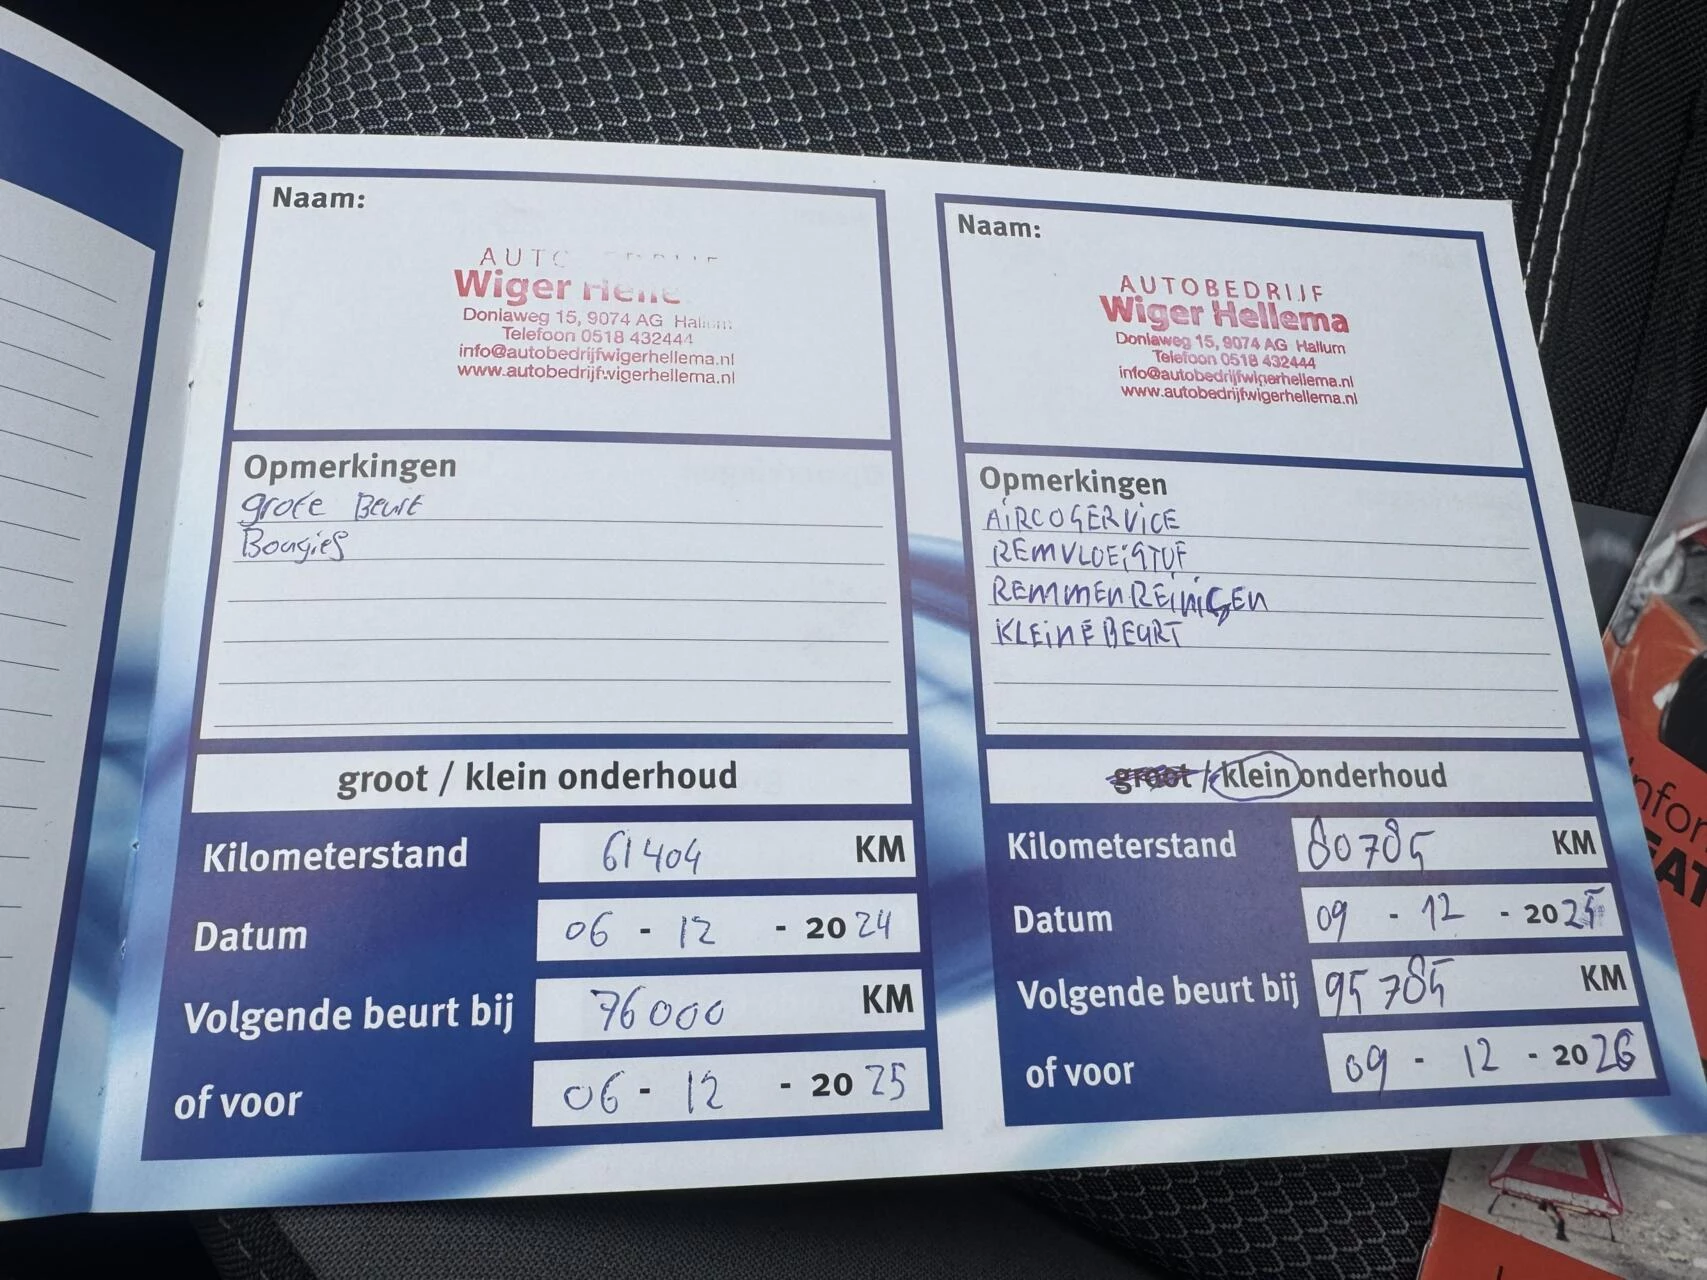 Naam:
AUTOBEDRIJF
Wiger Helle
Doniaweg 15, 9074 AG Hallum
Telefoon 0518 432444
info@autobedrijfwigerhellema.nl
www.autobedrijfwigerhellema.nl
Opmerkingen
grote Beurt
Bougies
groot / klein onderhoud
Kilometerstand 61404 KM
Datum 06 - 12 - 2024
Volgende beurt bij 76000 KM
of voor 06 - 12 - 2025
Naam:
AUTOBEDRIJF
Wiger Hellema
Doniaweg 15, 9074 AG Hallum
Telefoon 0518 432444
info@autobedrijfwigerhellema.nl
www.autobedrijfwigerhellema.nl
Opmerkingen
AIRCOSERVICE
REMVLOEISTOF
REMMEN REINIGEN
KLEINE BEURT
groot / klein onderhoud
Kilometerstand 80785 KM
Datum 09 - 12 - 2025
Volgende beurt bij 95785 KM
of voor 09 - 12 - 2026